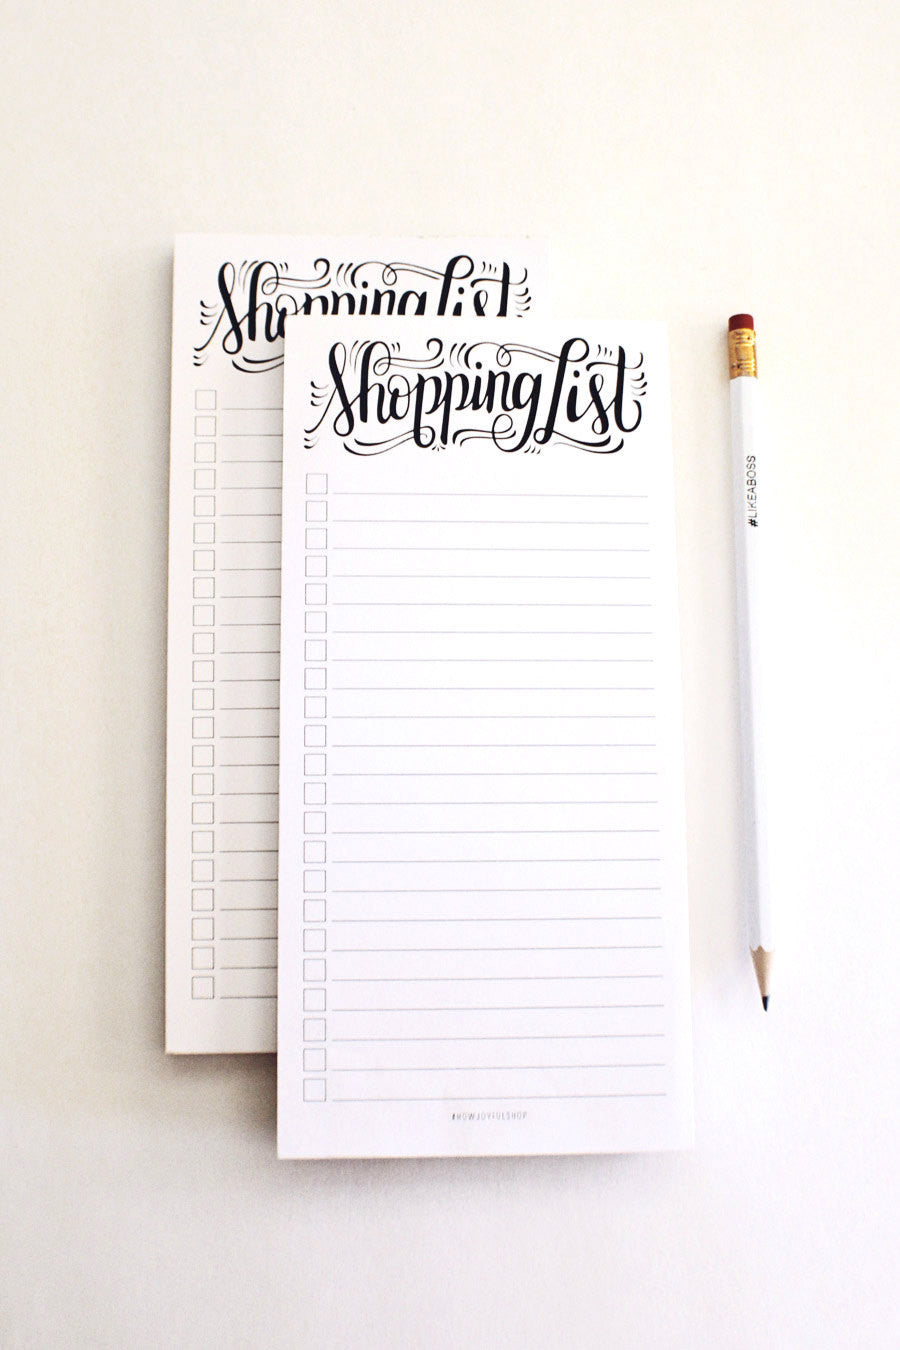 Shopping List
Shopping List
#LIKEABOSS
#HOWJOYFULSHOP